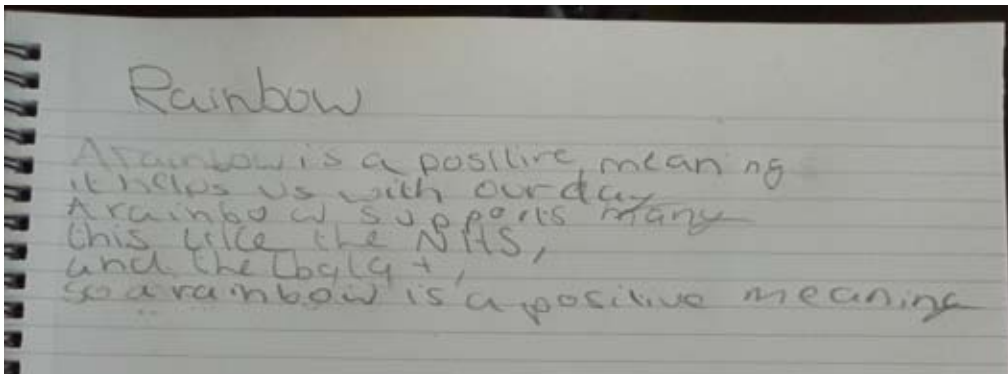 Rainbow
A rainbow is a positive meaning
it helps us with our day
A rainbow supports many
this like the NHS,
and the lbglq+,
so a rainbow is a positive meaning